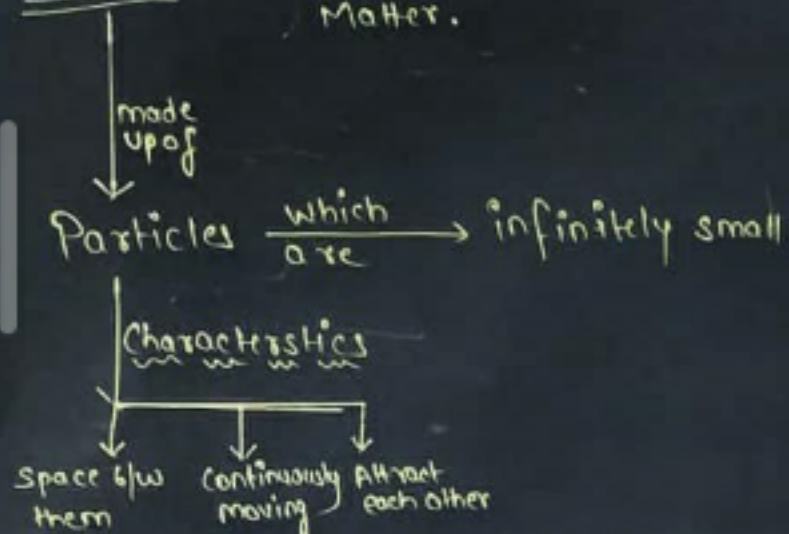 Matter.
made
up of
Particles which are infinitely small
Characterstics
Space b/w them
Continuously moving
Attract each other